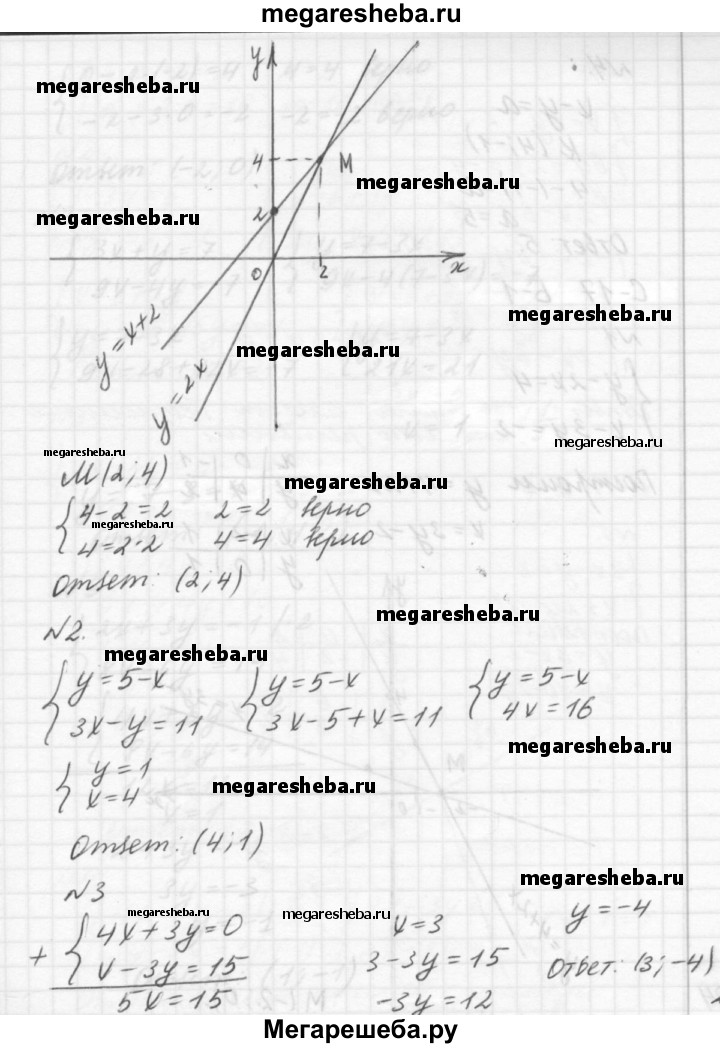 megaresheba.ru
y
megaresheba.ru
4
M
megaresheba.ru
megaresheba.ru
2
0
2
x
megaresheba.ru
y=x+2
megaresheba.ru
y=2x
megaresheba.ru
megaresheba.ru
M(2;4)
megaresheba.ru
4-2=2 2=2 верно
megaresheba.ru
4=2·2 4=4 верно
Ответ: (2;4)
megaresheba.ru
№2.
megaresheba.ru
y=5-x y=5-x y=5-x
3x-y=11 3x-5+x=11 4x=16
megaresheba.ru
y=1
x=4
megaresheba.ru
Ответ: (4;1)
megaresheba.ru
№3
megaresheba.ru megaresheba.ru
+ 4x+3y=0 x=3 y=-4
x-3y=15 3-3y=15 Ответ: (3;-4)
5x=15 -3y=12
Мегарешеба.ру